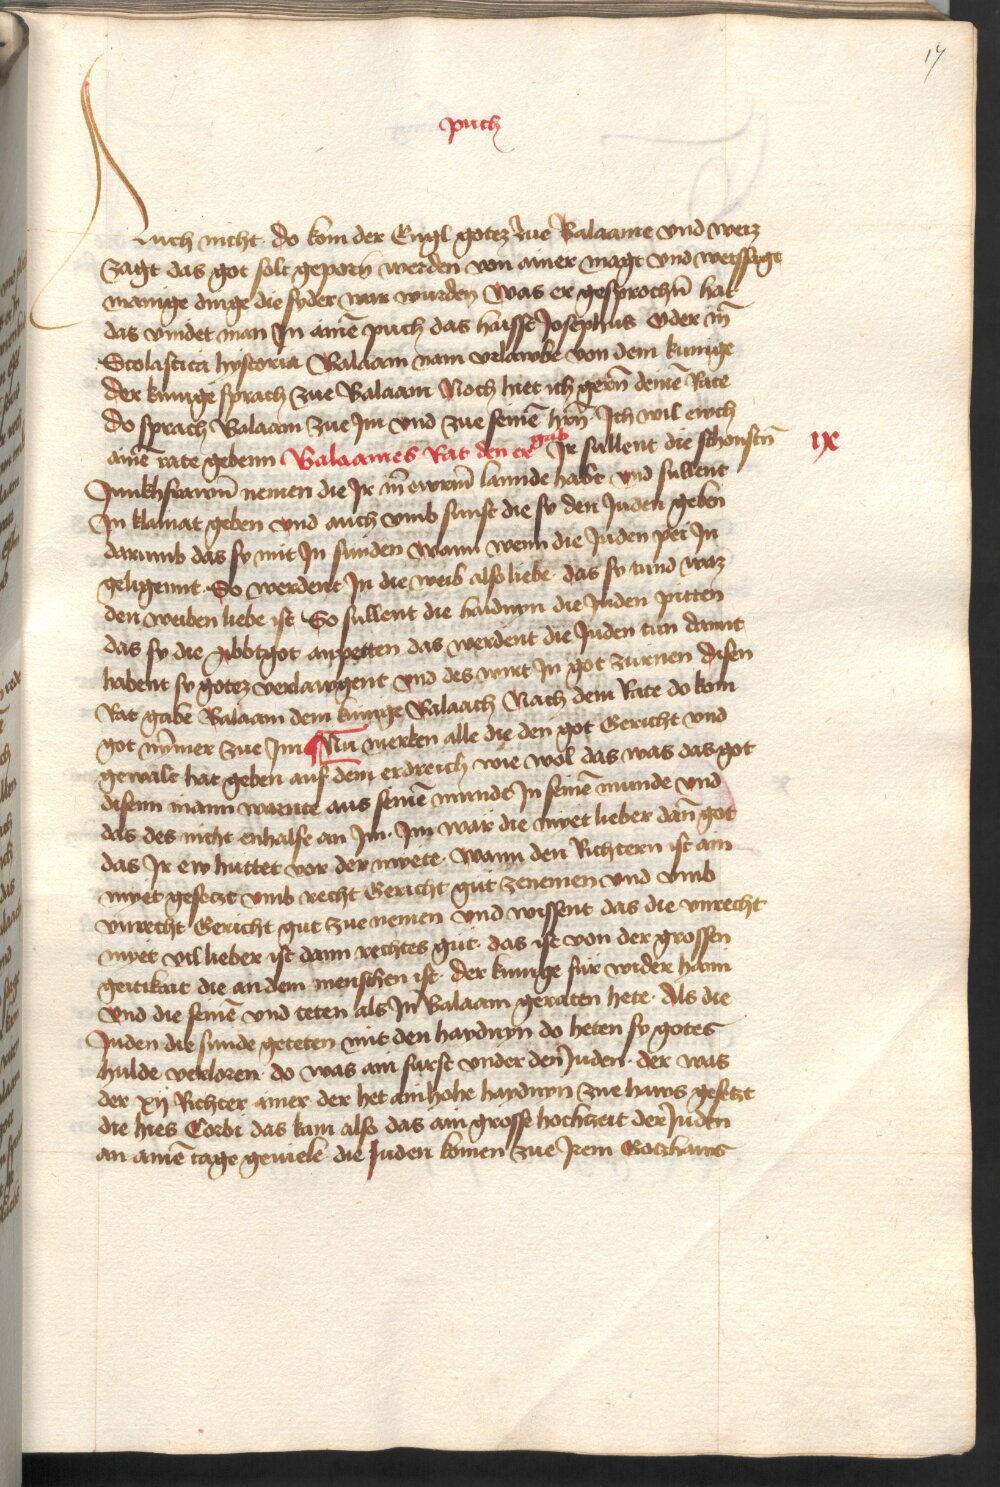 17
puch
Auch nicht · do kom der Engl gotez zue Balaame vnd weiz
zagt das got solt geporn werden von ainer magt vnd weissagt
manige dinge die syder war wurden Was er gesprochn̄ hat
das vindet man In ainē puch das haisst Josephus Oder In̄
Scolastica hystoria Balaam nam vrlawbe von dem kunige
der kunige sprach zue Balaam Noch hiet ich gern̄ deinē Rate
do sprach Balaam zue Im vnd zue seinē hrn̄ · Ich wil ewch
ainē rate gebenn Balaames Rat den er gab Ir sullent die schonstn̄
IX
Junkhfrawn̄ nemen die Ir In̄ ewrm̄ lannde habt vnd sullent
In klainat geben vnd auch vmb sunst die sy den Juden geben
darumb das sy mit In sunden wann wenn die Juden pei In
geligennt · So werdent In die weib also liebe · das sy tund waz
den weiben liebe ist So sullent die haidnyn die Juden pitten
das sy die Abbtgot anpetten das werdent die Juden tun damit
habent sy gotez verlawgent vnd des wirt In got zurnen disen
Rat gabe Balaam dem kunige Balaach Nach dem Rate do kom
got nymer zue Im Nu merken alle die den got Gericht vnd
gewalt hat geben auf dem erdreich wie wol das was das got
disenn mann warnte aus seinē munde In seinē munde vnd
das des nicht enhalfe an Im · Im war die myet lieber dan̄ got
das Ir ew huttet vor der myete · Wann den Richtern ist ain
myet gesetzt vmb recht Gericht gut zenemen vnd vmb
vnrecht Gericht gut zue nemen vnd wissent das die vnrecht
myet vil lieber ist dann rechtes gut · das ist von der grossen
geitikait die an dem menschen ist · der kunige fur wider haim
vnd die seinē vnd teten als In Balaam geraten hete · Als die
Juden die sunde geteten mit den haydnyn do heten sy gotes
hulde verloren · do was ain furst vnder den Juden · der was
der xij Richter ainer der het ain hohe haydnyn zue haws gesetzt
die hies Corbi das kam also das ain grosse hochzeit der Juden
an ainē tage geviele die Juden komen zue Irem Gotzhaws